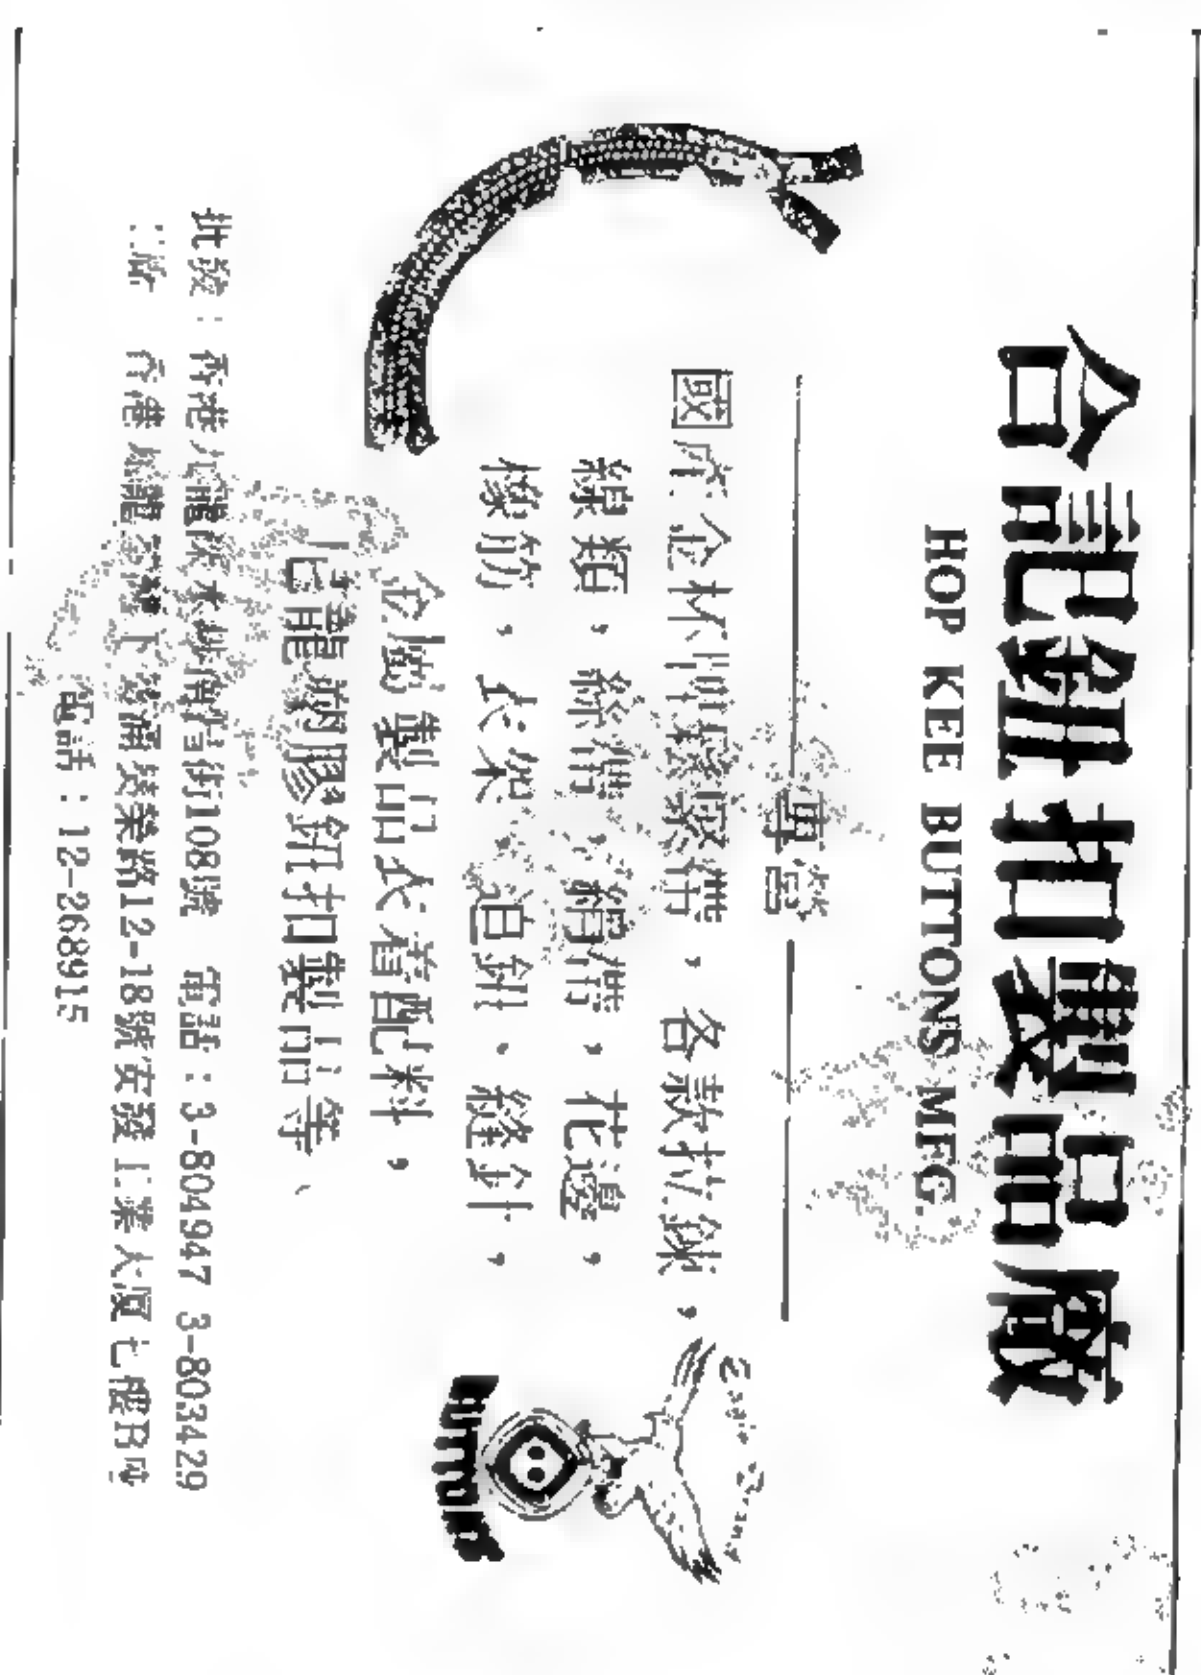 合記鈕扣製品廠
HOP KEE BUTTONS MFG.
專營
國産金杯牌緊帶，各款拉鍊，
線類，絲帶，絹帶，花邊，
橡筋，衣架，迫鈕，縫針，
金屬製品衣着配料，
尼龍粉膠鈕扣製品等
批發：香港九龍深水埗南昌街108號 電話：3-804947 3-803429
工廠 香港九龍 下葵涌葵榮路12-18號安發工業大厦七樓B座
電話：12-268915
Button